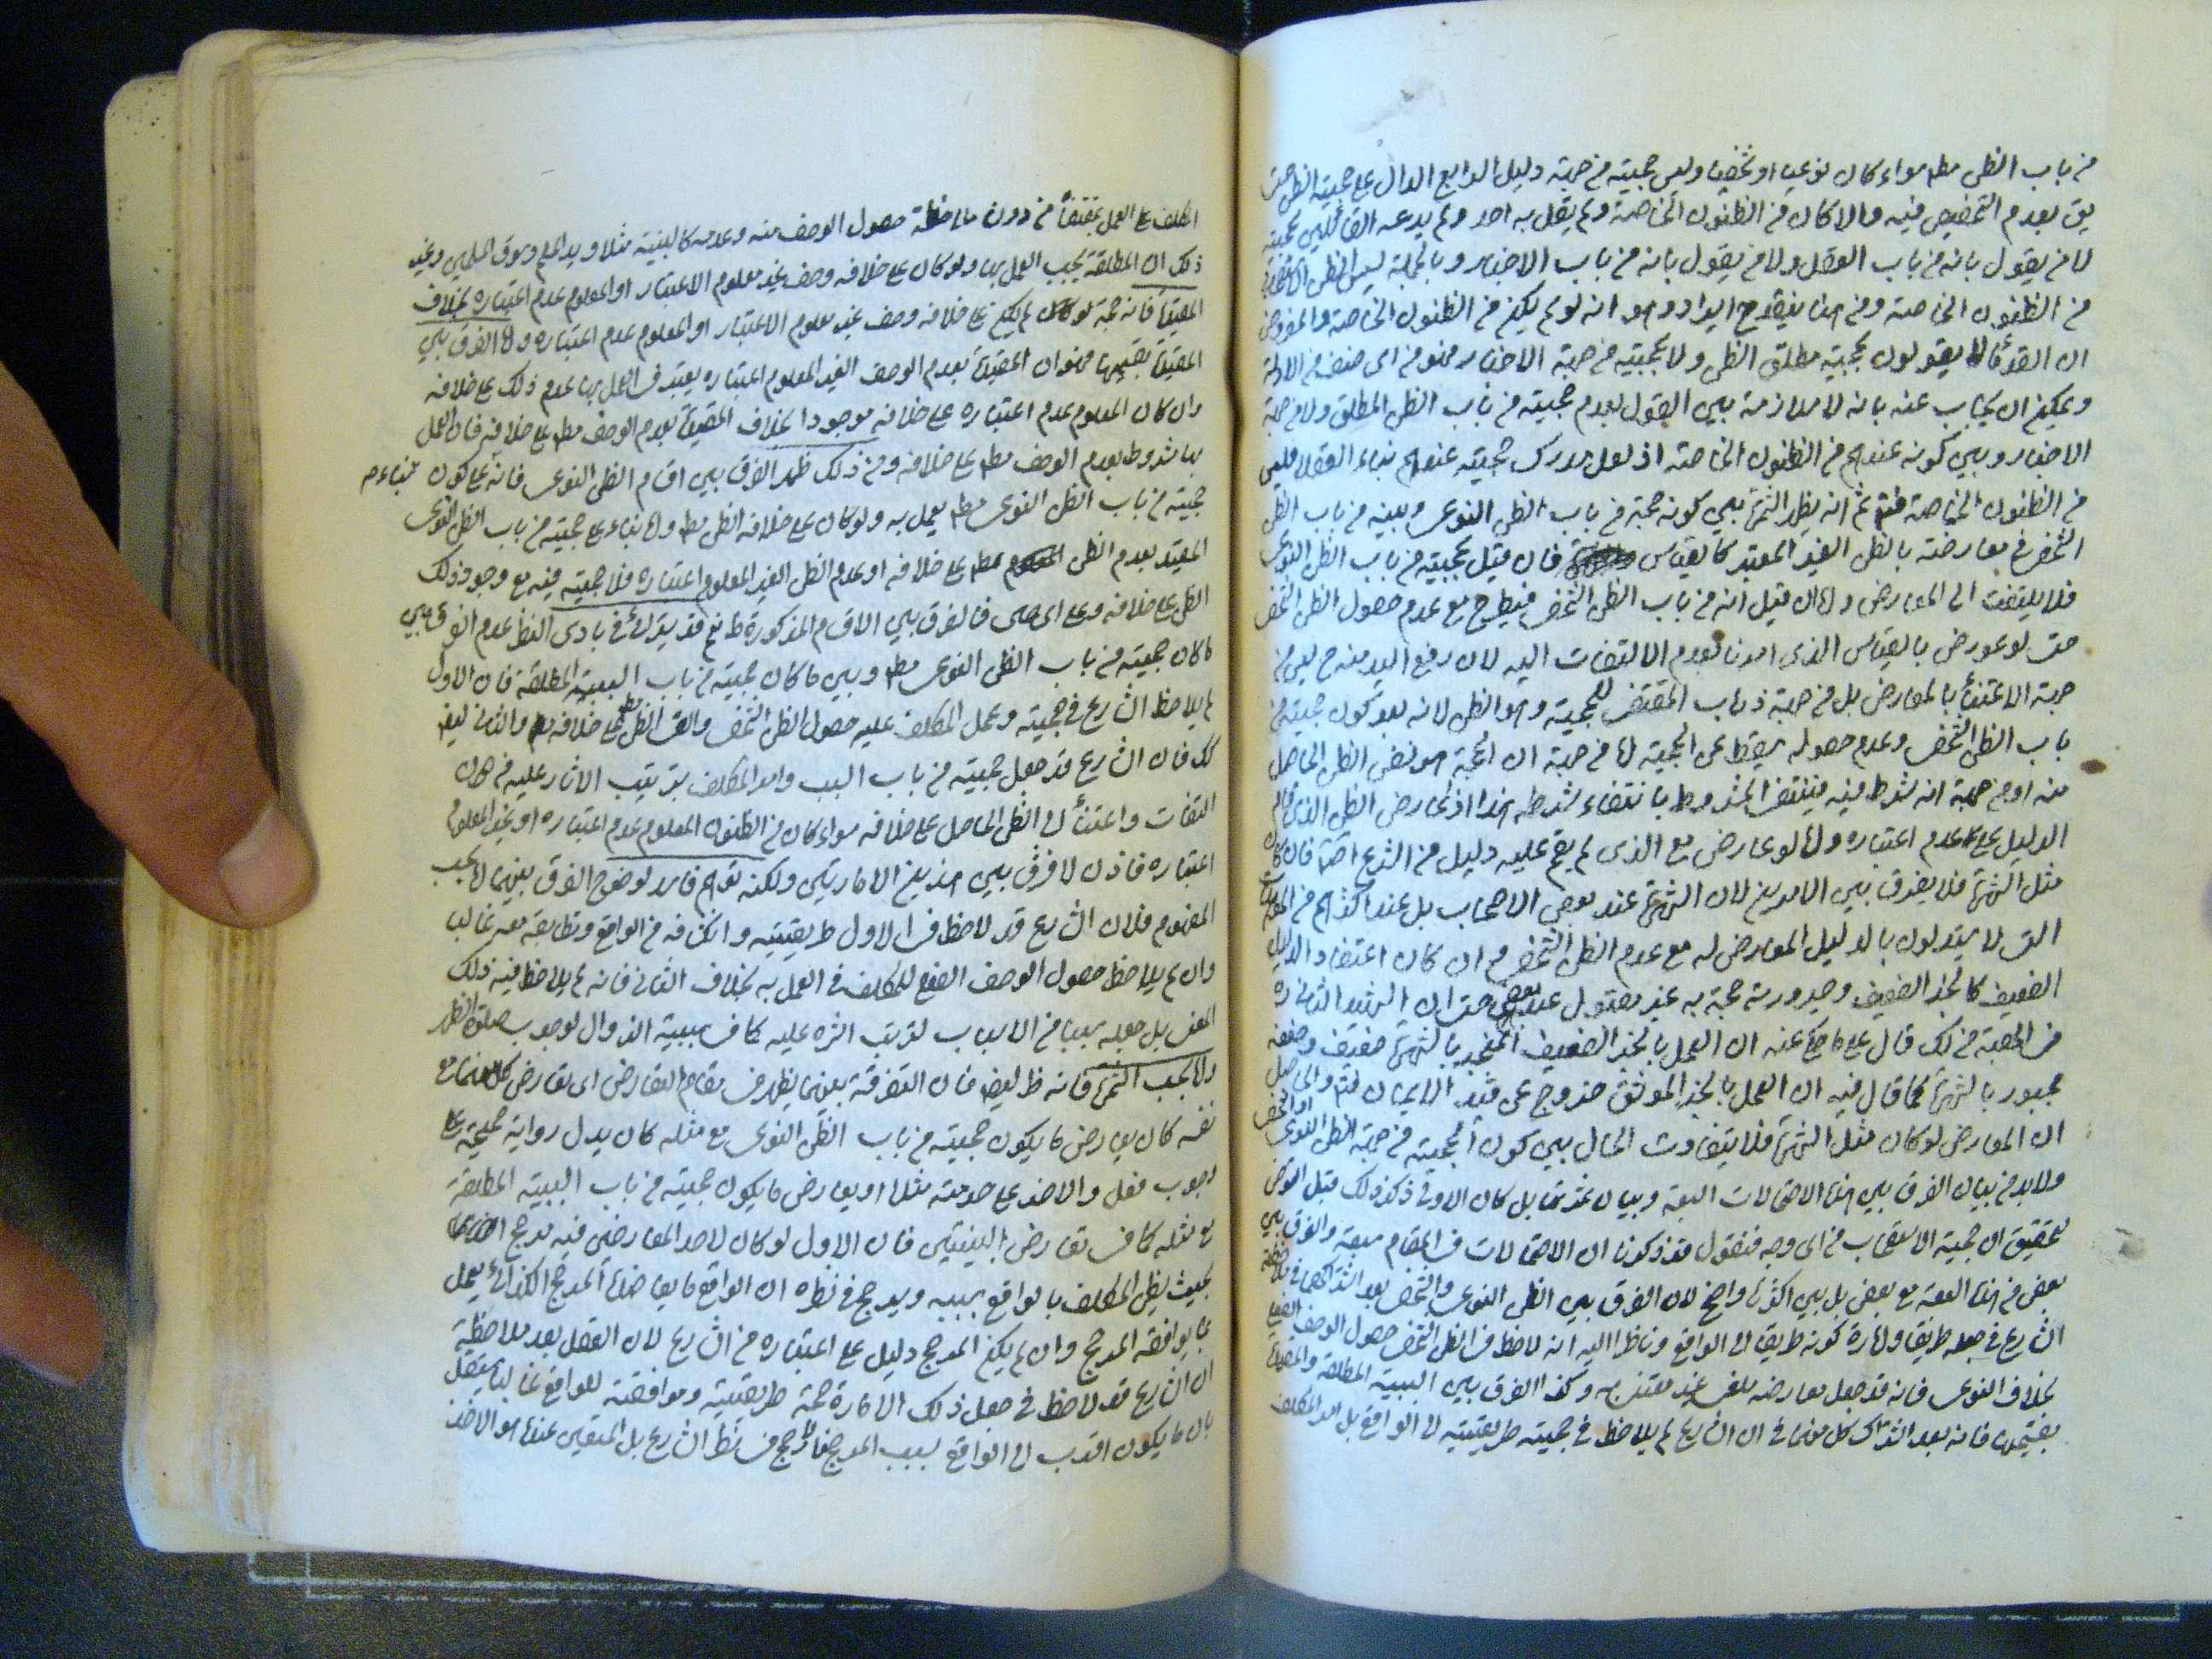 من باب الظن مطم سواء كان نوعيا او شخصيا وليس حجيته من جهة دليل الرابع الدال على حجية الظن حتى
يق بعدم التخصيص فيه والا كان من الظنون الخاصة ولم يقل به احد ولم يدعه القائلين بحجيته
لا من يقول بانه من باب العقل ولا من يقول بانه من باب الاخبار وبالجملة ليس الظن
من الظنون الخاصة ومن هنا ينقدح ايراد وهو انه لو لم يكن من الظنون الخاصة والمفروض
ان القدماء لا يقولون بحجية مطلق الظن ولا بحجيته من جهة الاخبار فهو من اى صنف من الادلة
ويمكن ان يجاب عنه بانه لا ملازمة بين القول بعدم حجيته من باب الظن المطلق ولا من جهة
الاخبار وبين كونه عندهم من الظنون الخاصة اذ لعل مدرك حجيته عندهم بناء العقلا فليس
من الظنون الخاصة فتم ثم انه يظهر الثمرة بين كونه حجة من باب الظن النوعى وبينه من باب الظن
الشخصى معارضته بالظن الغير المعتبر كالقياس فان قيل بحجيته من باب الظن النوعى
فلا يلتفت الى المعارض واما ان قيل انه من باب الظن الشخصى فيطرح مع عدم حصول الظن الشخصى
حتى لو عورض بالقياس الذى امرنا بعدم الالتفات اليه لان رفع اليد منه ح ليس من
جهة الاعتناء بالمعارض بل من جهة ذهاب المقتضى للحجية وهو الظن لانه بعد كون حجيته من
باب الظن الشخصى وعدم حصوله يسقط عن الحجية اما من جهة ان الحجة هو نفس الظن الحاصل
منه او من جهة انه شرط فيه فينتفى المشروط بانتفاء شرطه هذا اذا عارض الظن الذى قام
الدليل على عدم اعتباره واما لو عارض مع الذى لم يقم عليه دليل من الشرع اصلا فان كان
مثل الشهرة فلا يفرق بين الامرين لان الشهرة عند بعض الاصحاب بل عند اكثرهم من
التى لا يتدلون بالدليل المعارض له مع عدم الظن الشخصى وان كان اعتضاد الدليل
الضعيف كالخبر الضعيف وصيرورته حجة به غير مقبول عند بعض حتى ان الشهيد الثانى ره
من الحجية من ذلك قال على ما حكى عنه ان العمل بالخبر الضعيف المنجبر بالشهرة ضعيف وضعفه
مجبور بالشهرة كما قال فيه ان العمل بالخبر الموثق خروج عن قيد الايمان فتم والحاصل
ان المعارض لو كان مثل الشهرة فلا يتفاوت الحال بين كون الحجية من جهة الظن النوعى او الشخصى
ولا بد من بيان الفرق بين هذه الاحتمالات السبعة وبيان ثمرتها بل كان الاولى ذكر ذلك قبل التعرض
لتحقيق ان حجية الاستصحاب من اى وجه فنقول قد ذكرنا ان الاحتمالات فى المقام سبعة والفرق بين
بعض من هذه السبعة مع بعض بل بين اكثرها واضح لان الفرق بين الظن النوعى والشخصى بعد اشتراكهما فى
الشارع فى جعله طريقا وامارة كونه طريقا الى الواقع وناظرا اليه انه لاحظ فى الظن الشخصى حصول الوصف الفعلى
بخلاف النوعى فانه قد جعل معارضه بنفس غير معتنى به وكذا الفرق بين السببية المطلقة والمقيدة
بقسميها فانه بعد اشتراك كل منهما فى ان الشارع لم يلاحظ فى حجيته طريقيته الى الواقع بل امر المكلف
المكلف على العمل بمقتضاه من دون ملاحظة حصول الوصف منه وعدمه كالبينة مثلا ويد المسلم وسوق المسلمين وغير
ذلك ان المطلقة يجب العمل بها ولو كان على خلافه وصف غير معلوم الاعتبار او المعلوم عدم اعتباره بخلاف
المقيدة فانه حجة لو كان لم يكن على خلافه وصف غير معلوم الاعتبار او المعلوم عدم اعتباره واما الفرق بين
المقيدة بقسميها فهو ان المقيدة بعدم الوصف الغير المعلوم اعتباره يعتبر فى العمل بها عدم ذلك على خلافه
وان كان المعلوم عدم اعتباره على خلافه موجودا بخلاف المقيدة بعدم الوصف مطم على خلافه فان العمل
بها مشروط بعدم الوصف مطم على خلافه ومن ذلك ظهر الفرق بين اقسام الظن النوعى فانه على كون بناء
حجيته من باب الظن النوعى مطم يعمل به ولو كان على خلافه الظن مطم واما بناء على حجيته من باب الظن النوعى
المقيد بعدم الظن مطم على خلافه او عدم الظن الغير المعلوم اعتباره فلا حجية فيه مع وجود ذلك
الظن على خلافه وعلى اى حال فالفرق بين الاقسام المذكورة ظ نعم قد يترائى فى بادى النظر عدم الفرق بين
ما كان حجيته من باب الظن النوعى مطم وبين ما كان حجيته من باب السببية المطلقة فان الاول
لم يلاحظ الشارع فى حجيته وعمل المكلف عليه حصول الظن الشخصى وانتفى الظن على خلافه مطم والثانى ايضا
كك فان الشارع قد جعل حجيته من باب السبب وامر المكلف بترتيب الاثار عليه من دون
التفات واعتناء الى الظن الحاصل على خلافه سواء كان من الظنون المعلوم عدم اعتباره او غير المعلوم
اعتباره فاذن لا فرق بين هذين الامارتين ولكنه توهم فاسد لوضوح الفرق بينهما اما بحسب
المفهوم فلان الشارع قد لاحظ فى الاول طريقيته وانكشافه من الواقع وتطابقه معه غالبا
وان لم يلاحظ حصول الوصف الفعلى للمكلف فى العمل به بخلاف الثانى فانه لم يلاحظ فيه ذلك
المعنى بل جعله سببا من الاسباب لترتب اثره عليه كما فى سببية الزوال لوجوب صلوة الظهر
واما بحسب الثمرة فانه ظ ايضا فان التفرقة بينهما يظهر فى مقام التعارض اى تعارض كل منهما مع
نفسه كان يعارض ما يكون حجيته من باب الظن النوعى مع مثله كان يدل رواية صحيحة على
وجوب فعل والاخر على حرمته مثلا او يعارض ما يكون حجيته من باب السببية المطلقة
مع مثله كما فى تعارض البينتين فان الاول لو كان لاحد المعارضين فيه مرجح
بحيث يظن المكلف بالواقع بسببه ويرجح فى نظره ان الواقع ما يعاضده المرجح الكذائى يعمل
بما يوافقه المرجح وان لم يكن المرجح دليل على اعتباره من الشارع لان العقل بعد ملاحظة
ان الشارع قد لاحظ فى جعل ذلك الامارة حجة طريقيته وموافقته للواقع غالبا يستقل
بان ما يكون اقرب الى الواقع بسبب المرجح ارجح فى نظر الشارع بل المتعين عنده هو الاخذ